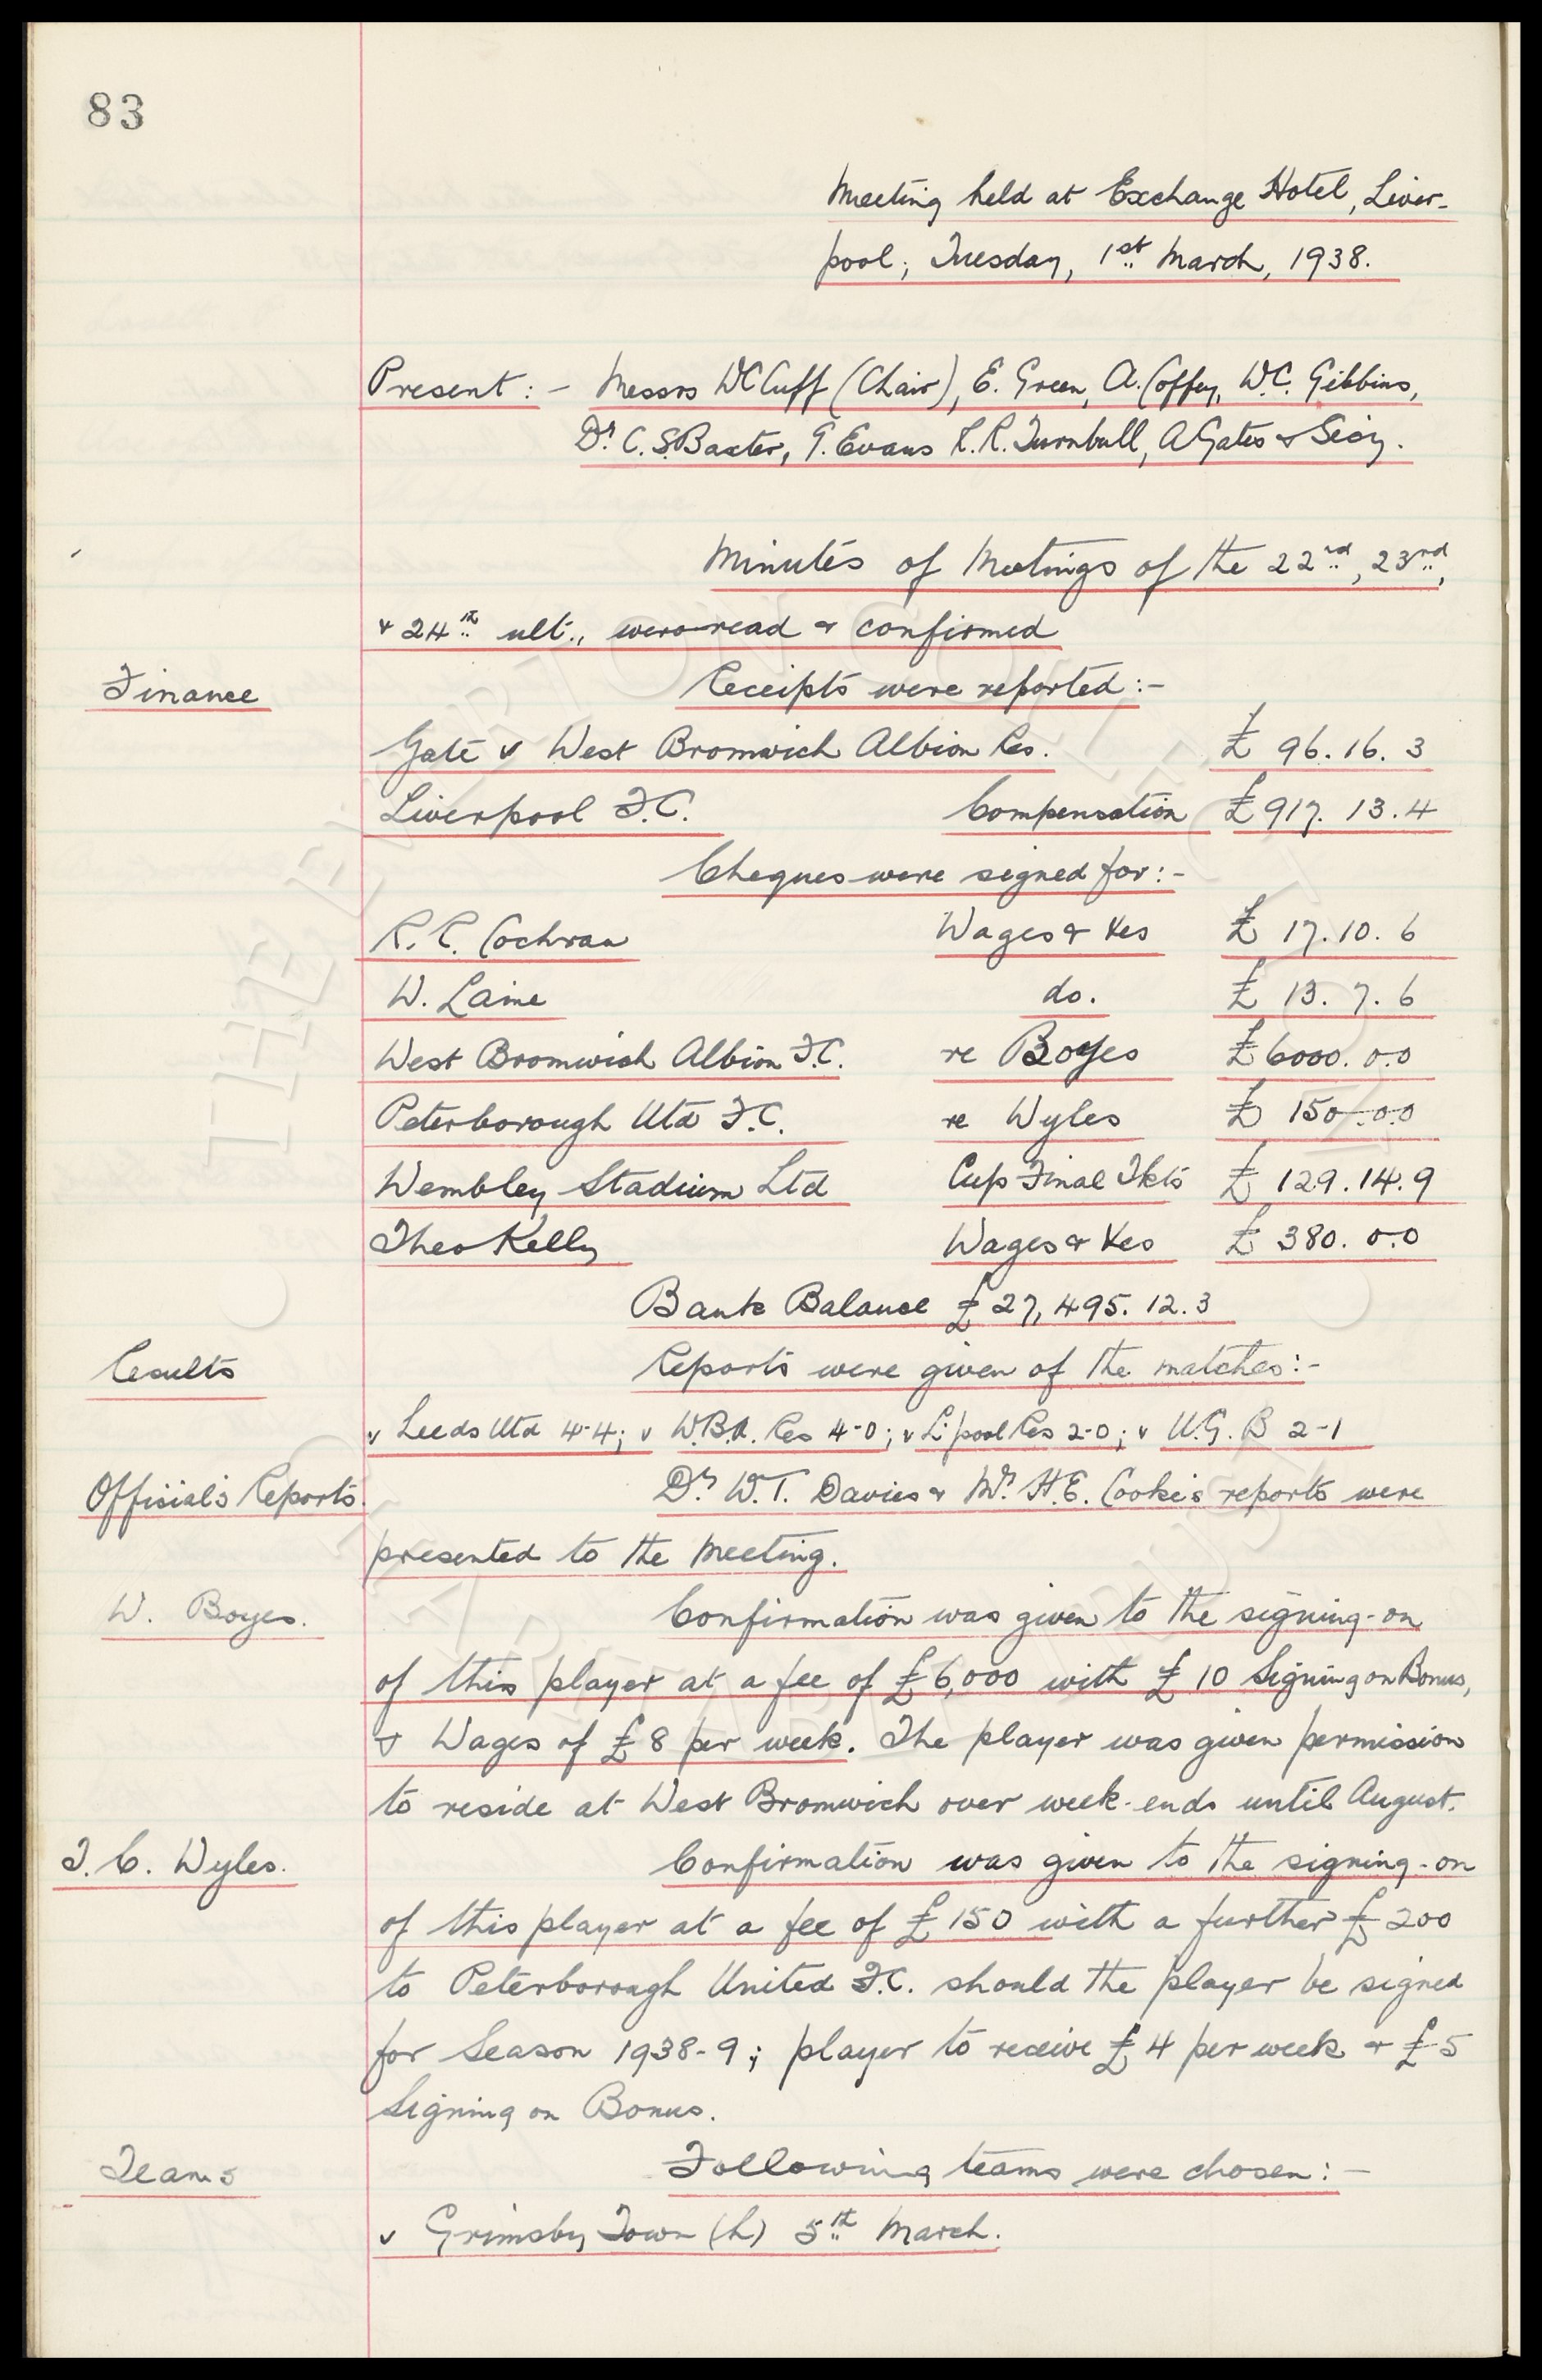 83
Meeting held at Exchange Hotel, Liver-
pool, Tuesday, 1st March, 1938.
Present :- Messrs WC Cuff (Chair), E. Green, A. Coffey, W.C. Gibbins,
Dr. C. S. Baxter, T. Evans R.R. Turnbull, A Gates & Secy.
Minutes of Meetings of the 22nd, 23rd,
& 24th ult., were read & confirmed
Finance
Receipts were reported :-
Gate v West Bromwich Albion Res. £ 96. 16. 3
Liverpool F.C. Compensation £ 917. 13. 4
Cheques were signed for :-
R. R. Cochran Wages & Xes £ 17. 10. 6
W. Laine do. £ 13. 7. 6
West Bromwich Albion F.C. re Boyes £ 6000. 0.0
Peterborough Utd F.C. re Wyles £ 150.0.0
Wembley Stadium Ltd Cup Final Tkts £ 129. 14. 9
Theo Kelly Wages & Xes £ 380. 0.0
Bank Balance £ 27,495. 12. 3
Results
Reports were given of the matches :-
v Leeds Utd 4-4; v W.B.A. Res 4-0; v L'pool Res 2-0; v U.G. B 2-1
Official's Reports.
Dr. W.T. Davies & Mr. H.E. Cooke's reports were
presented to the Meeting.
W. Boyes.
Confirmation was given to the signing-on
of this player at a fee of £6,000 with £ 10 Signing on Bonus,
& Wages of £8 per week. The player was given permission
to reside at West Bromwich over week-ends until August.
T. C. Wyles.
Confirmation was given to the signing-on
of this player at a fee of £150 with a further £200
to Peterborough United F.C. should the player be signed
for Season 1938-9; player to receive £4 per week & £5
Signing on Bonus.
Teams
Following teams were chosen :-
v Grimsby Town (h) 5th March.